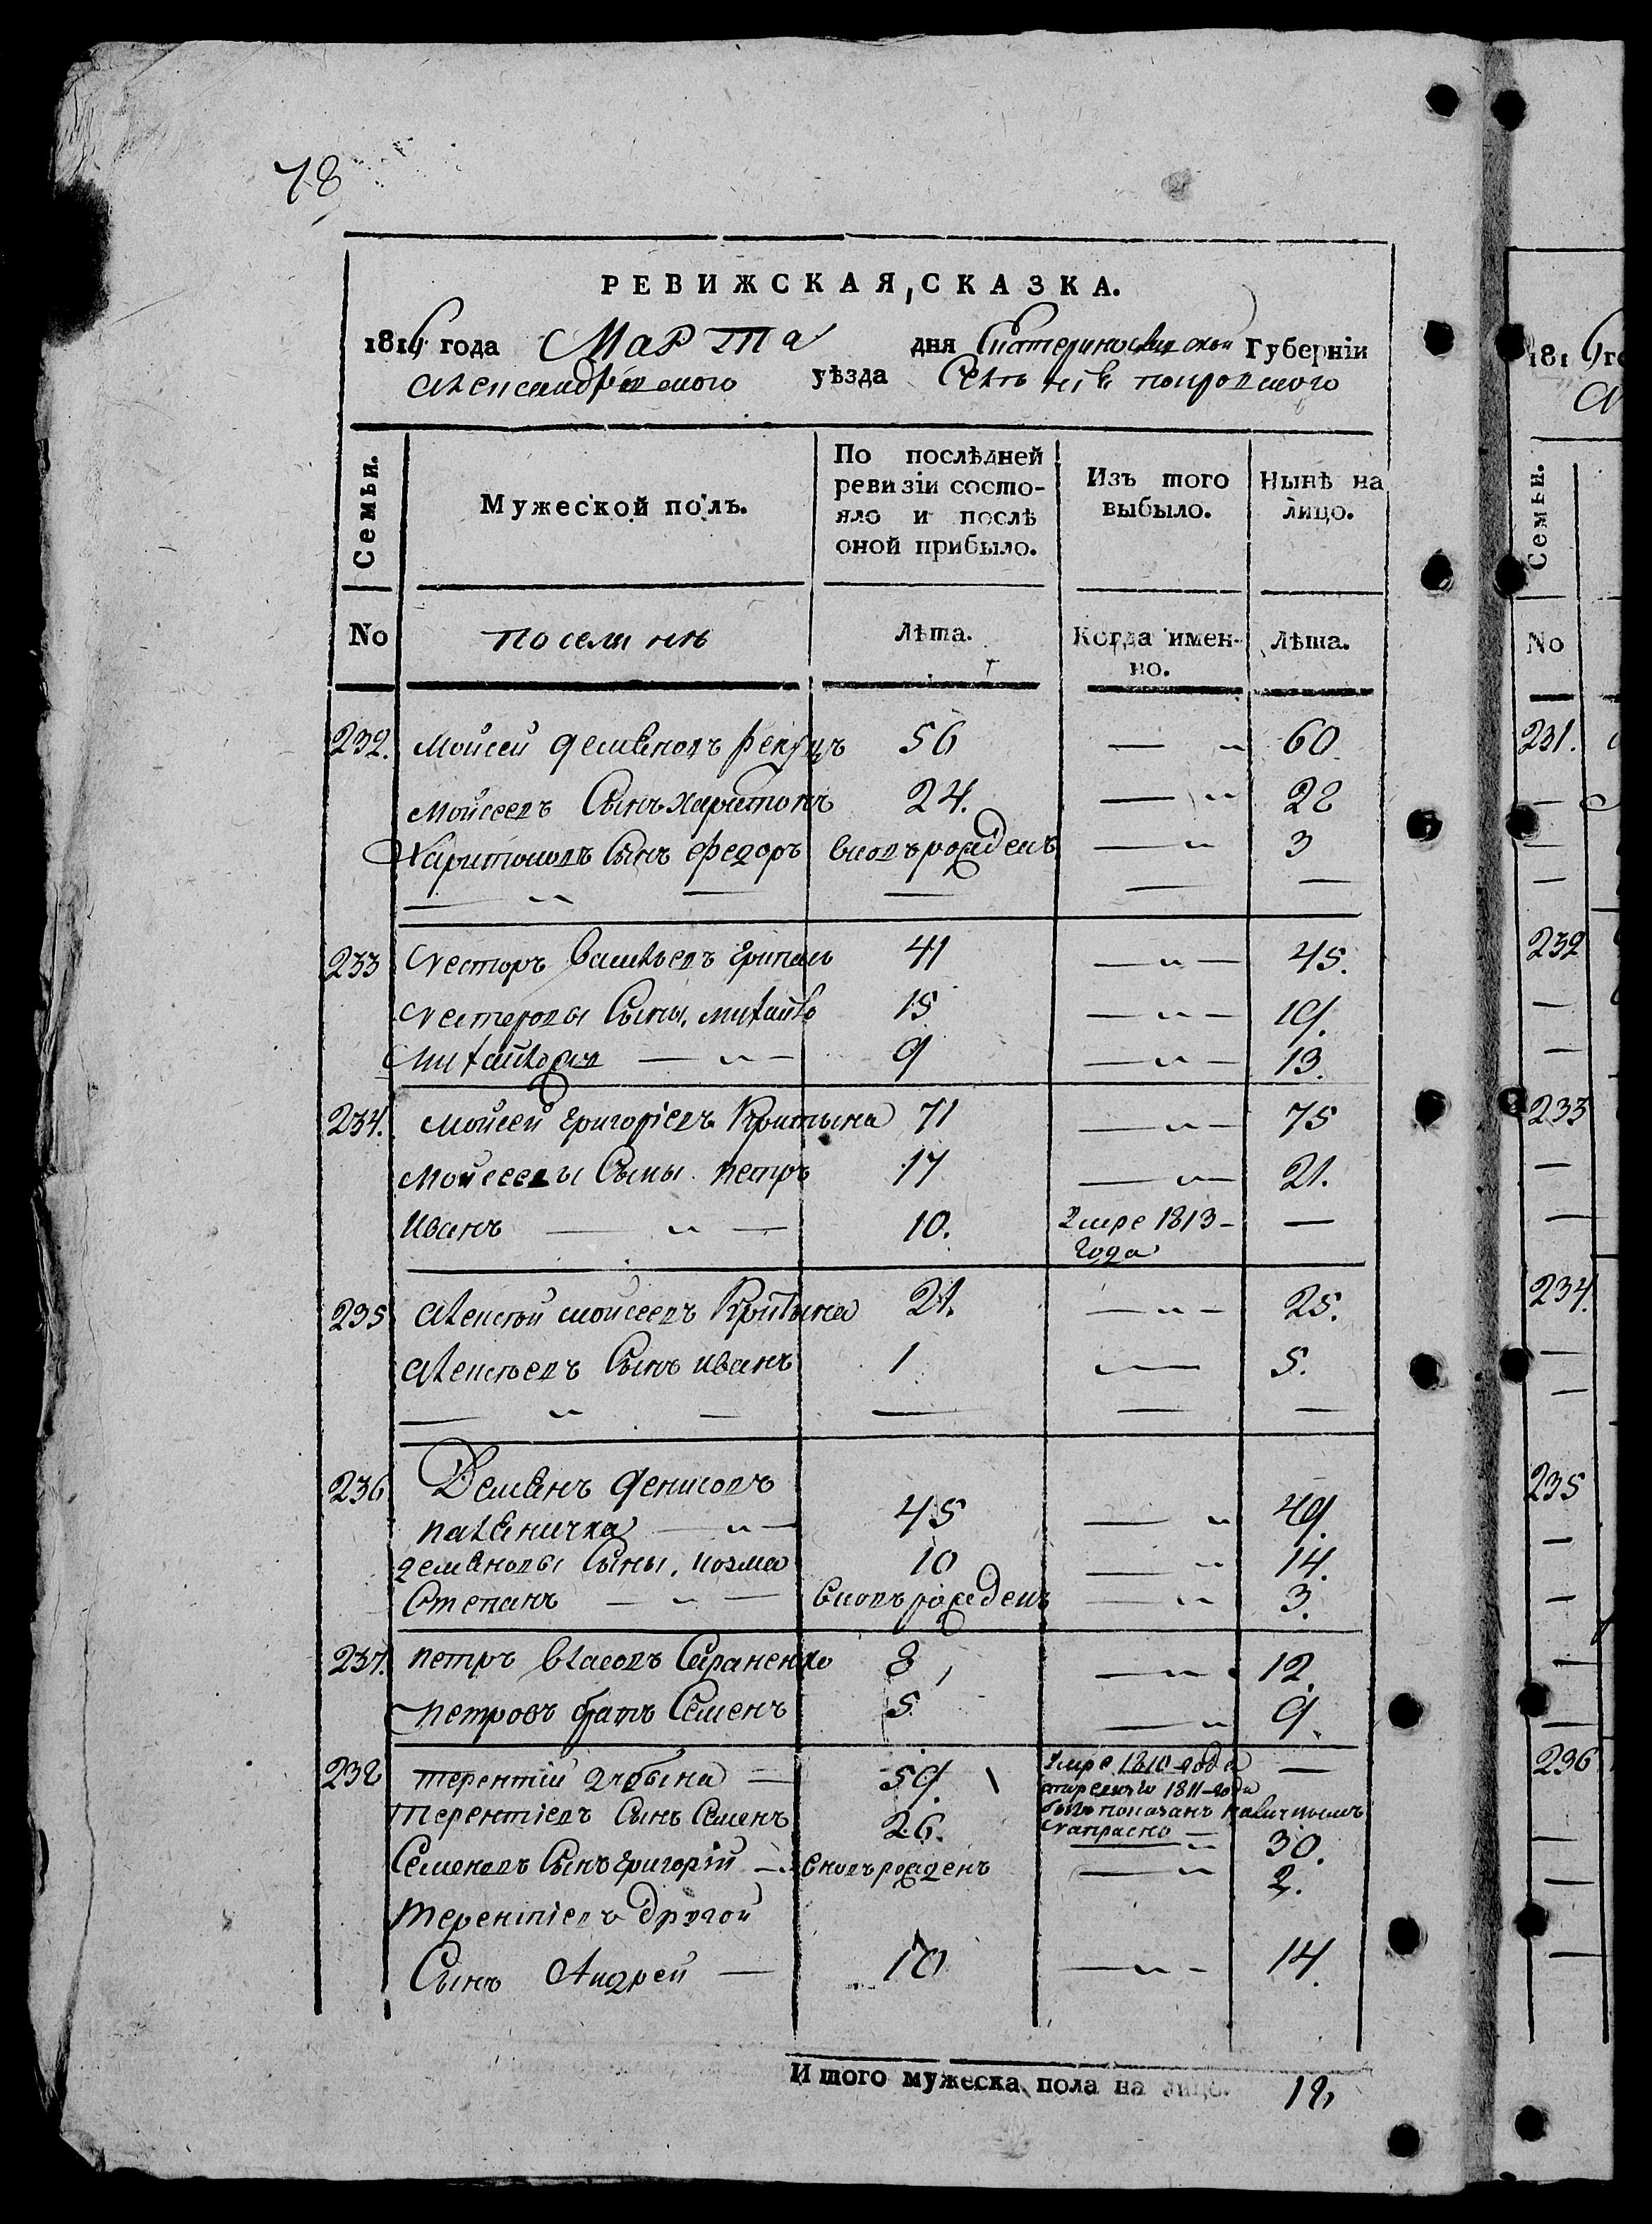 78
РЕВИЖСКАЯ СКАЗКА.
1816 года Марта дня Екатеринославской Губерніи
Александровского уѣзда Селенія покровского
Семьи.
Мужеской полъ.
По послѣдней ревизіи состо-
яло и послѣ
оной прибыло.
Изъ того
выбыло.
Нынѣ на
лицо.
No
поселяне
Лѣта.
Когда имен-
но.
Лѣта.
232. Моисей демяновъ 56 — „ 60
Моисеевъ Сынъ Харитонъ 24. — „ 28
Харитоновъ Сынъ федоръ вновь рожденъ — „ 3
— „ — — — —
233 Несторъ Васильевъ 41 — „ — 45.
Нестеровы Сыны, михайло 15 — „ — 19.
— „ — 9 — „ — 13.
234. Моисей григоріевъ Критына 71 — „ — 75
Моисеевы Сыны петръ 17 — „ — 21.
Иванъ — „ — 10. Умре 1813- —
года
235 Алексей моисеевъ Критына 21. — „ — 25.
Алексеевъ Сынъ иванъ 1 — 5.
— „ — — — —
236 Демянъ денисовъ
паляничка — „ — 45 — „ 49.
демяновы Сыны, козма 10 — „ 14.
Степанъ — „ — вновь рожденъ — „ 3.
237. петръ власовъ Сараненко 8 — „ 12.
петровъ братъ Семенъ 5 — „ 9.
238 терентій 59. Умре 1810 года —
1811-года
Терентіевъ Сынъ Семенъ 26. былъ показанъ наличнымъ
напрасно — „ 30.
Семеновъ Сынъ григорій — вновь рожденъ — „ 2.
терентіевъ другой
Сынъ Андрей — 10 — „ — 14.
Итого мужеска пола на лицо. 18
1816 го
Семьи.
No
231.
232
233
234.
235
236